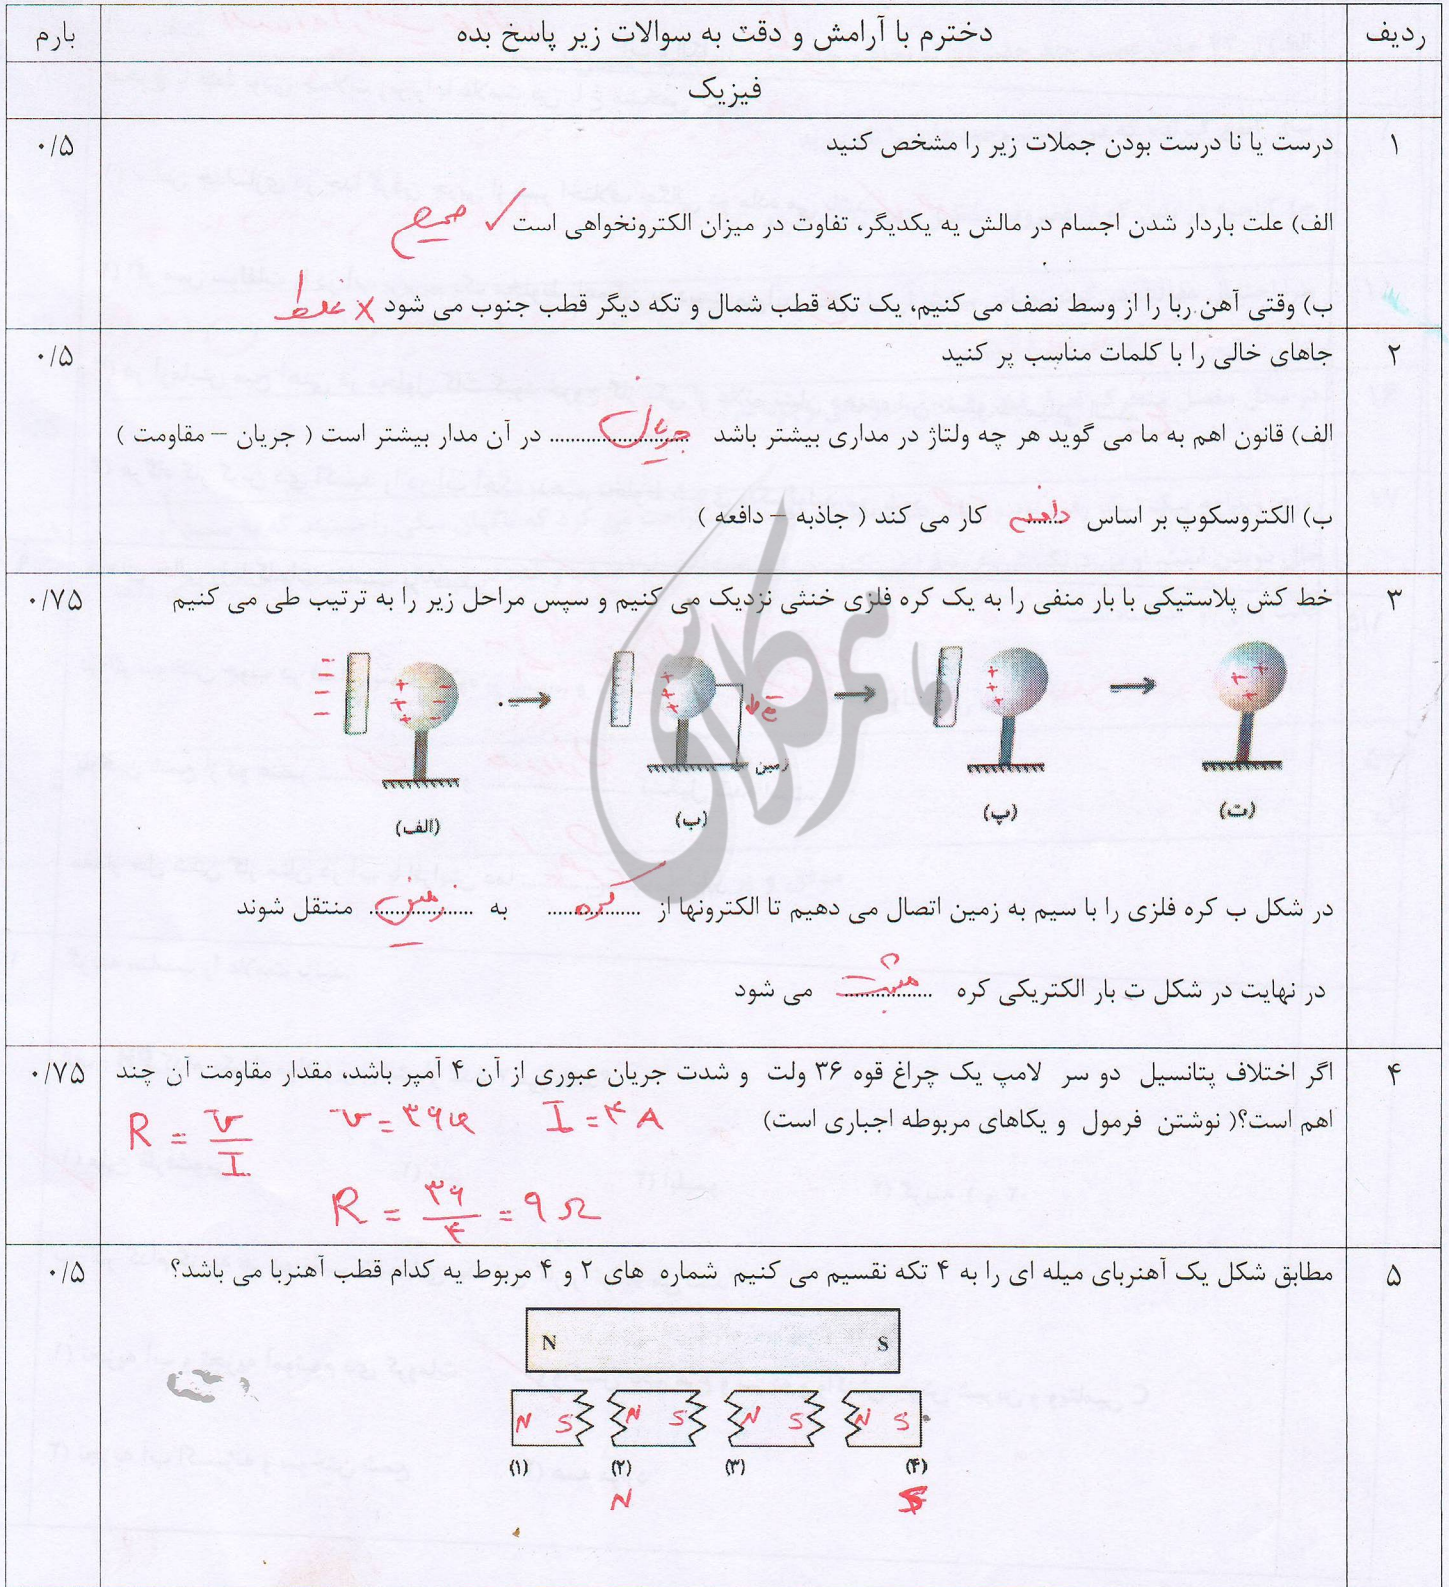 ردیف دخترم با آرامش و دقت به سوالات زیر پاسخ بده بارم
فیزیک
۱ درست یا نا درست بودن جملات زیر را مشخص کنید ۰/۵
الف) علت باردار شدن اجسام در مالش یه یکدیگر، تفاوت در میزان الکترونخواهی است ✓ صحیح
ب) وقتی آهن ربا را از وسط نصف می کنیم، یک تکه قطب شمال و تکه دیگر قطب جنوب می شود × غلط
۲ جاهای خالی را با کلمات مناسب پر کنید ۰/۵
الف) قانون اهم به ما می گوید هر چه ولتاژ در مداری بیشتر باشد جریان در آن مدار بیشتر است ( جریان – مقاومت )
ب) الکتروسکوپ بر اساس دافعه کار می کند ( جاذبه – دافعه )
۳ خط کش پلاستیکی با بار منفی را به یک کره فلزی خنثی نزدیک می کنیم و سپس مراحل زیر را به ترتیب طی می کنیم ۰/۷۵
زمین
(الف) (ب) (پ) (ت)
در شکل ب کره فلزی را با سیم به زمین اتصال می دهیم تا الکترونها از کره به زمین منتقل شوند
در نهایت در شکل ت بار الکتریکی کره مثبت می شود
۴ اگر اختلاف پتانسیل دو سر لامپ یک چراغ قوه ۳۶ ولت و شدت جریان عبوری از آن ۴ آمپر باشد، مقدار مقاومت آن چند ۰/۷۵
اهم است؟( نوشتن فرمول و یکاهای مربوطه اجباری است)
R = V/I V = ۳۶V I = ۴ A
R = ۳۶/۴ = ۹ Ω
۵ مطابق شکل یک آهنربای میله ای را به ۴ تکه نقسیم می کنیم شماره های ۲ و ۴ مربوط یه کدام قطب آهنربا می باشد؟ ۰/۵
N S
N S N S N S N S
(۱) (۲) (۳) (۴)
N S